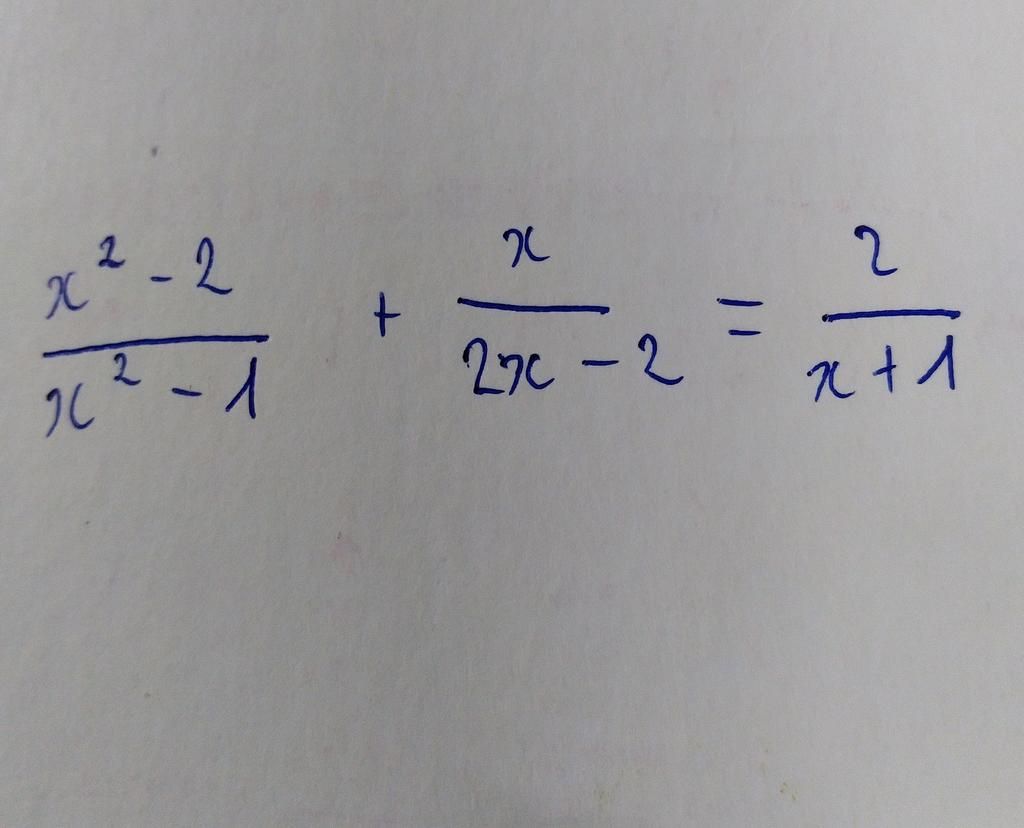 \frac{x^2 - 2}{x^2 - 1} + \frac{x}{2x - 2} = \frac{2}{x + 1}